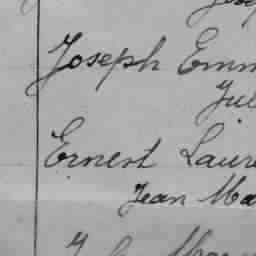 Joseph Emm
Jul
Ernest Laure
Jean Ma